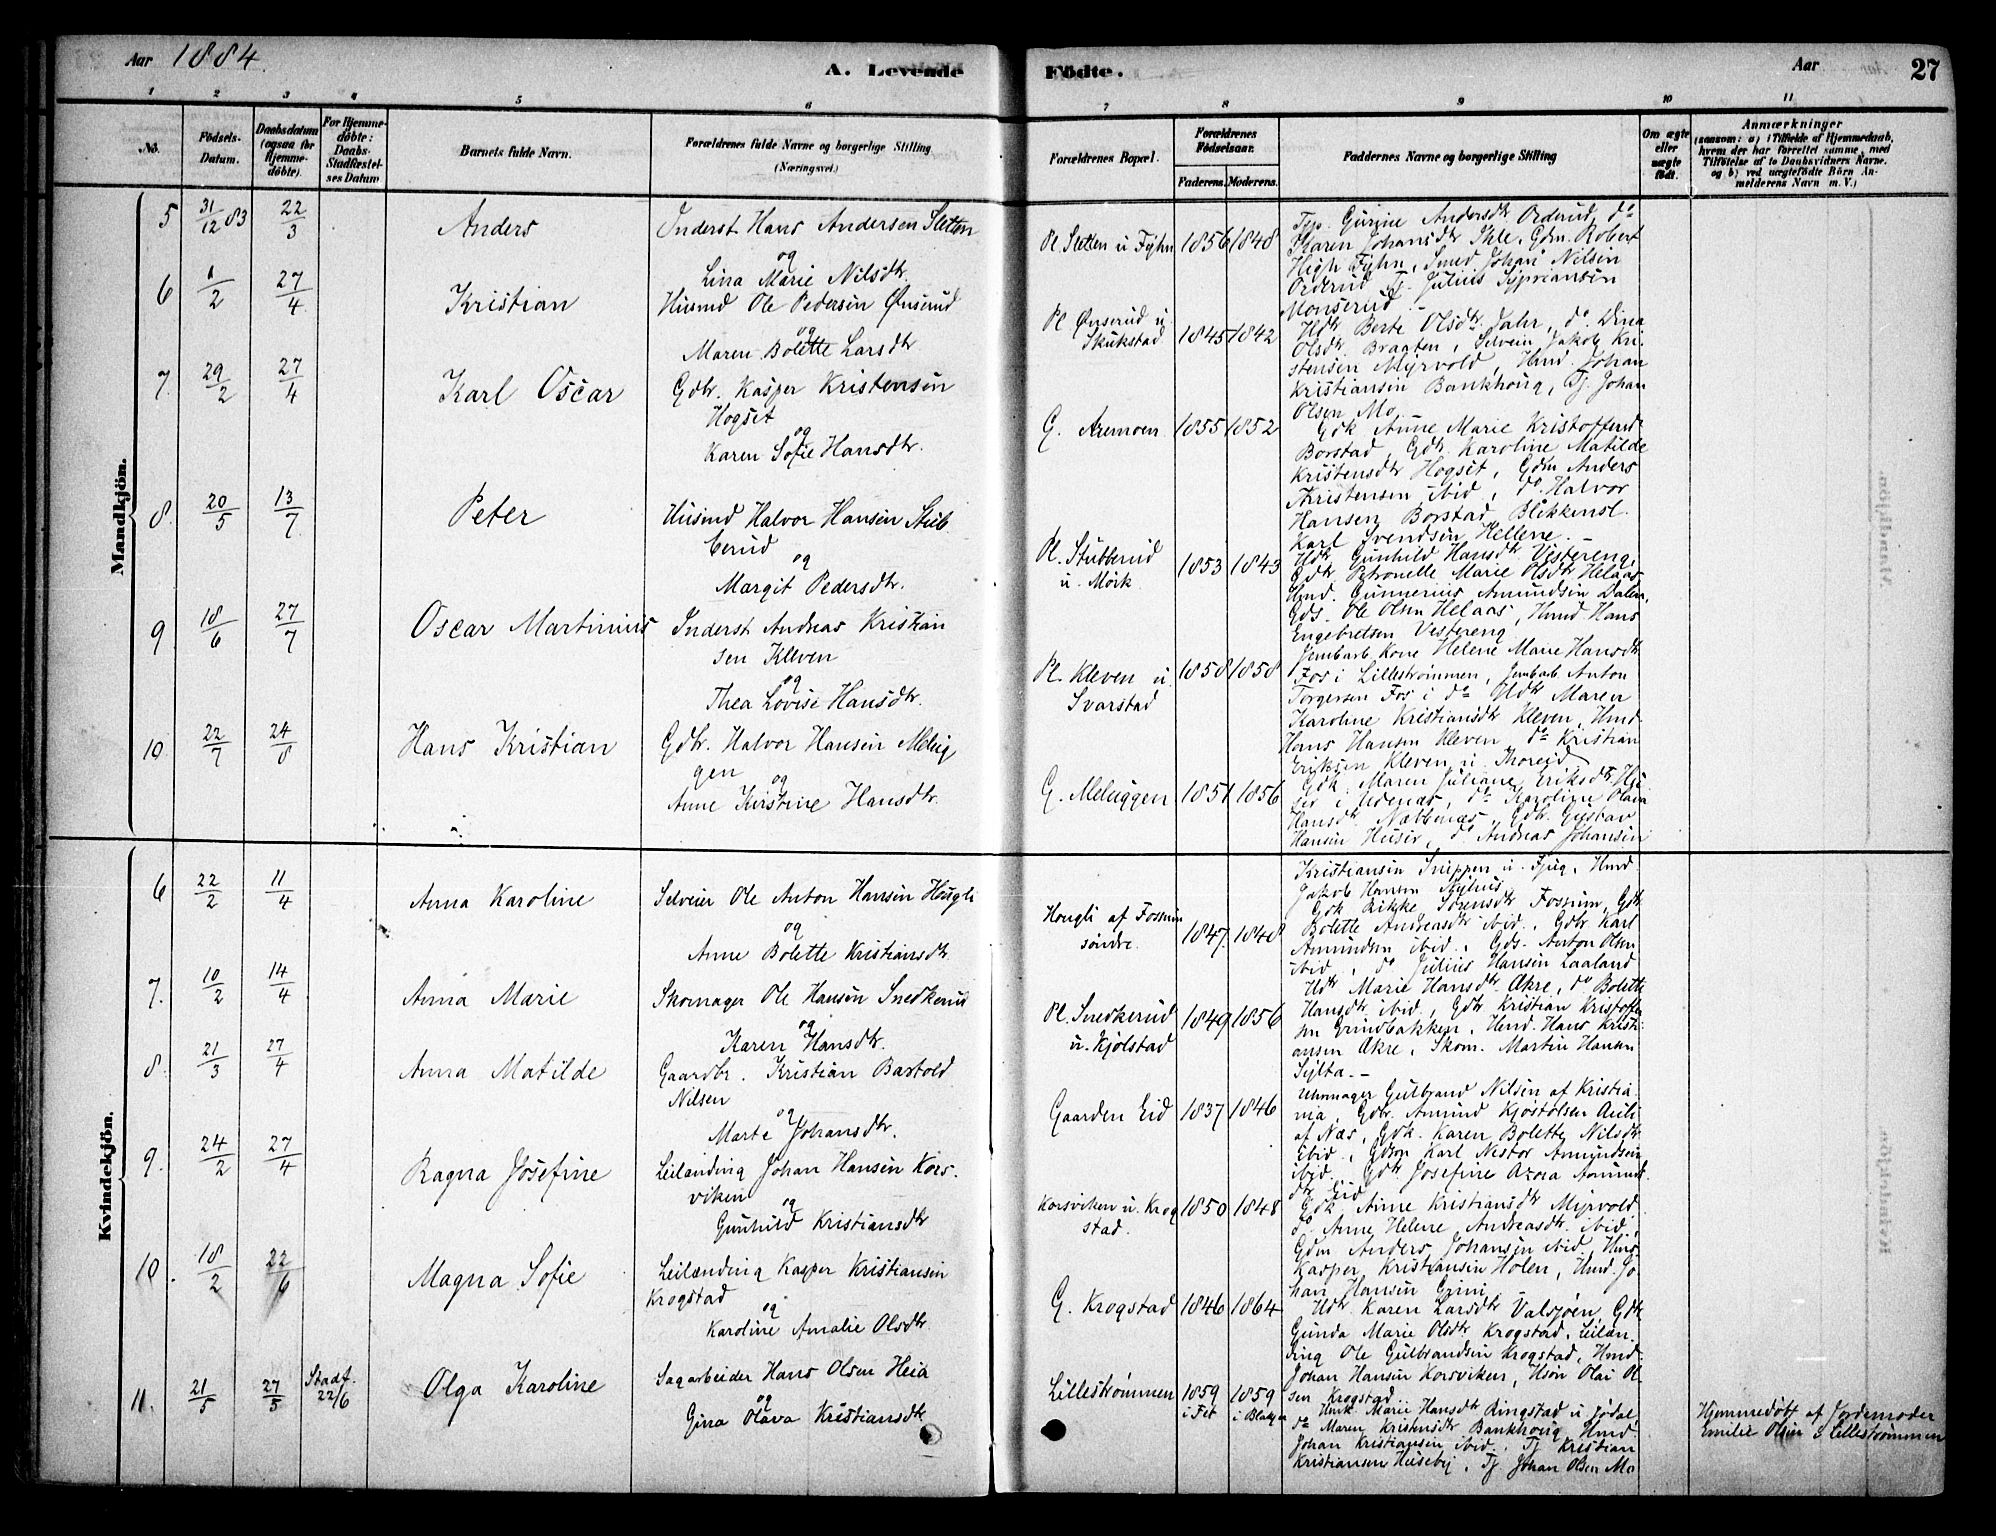 Aar 1884. A. Levende Födte. Aar 27
1 2 3 4 5 6 7 8 9 10 11
No. Födsels-Datum. Daabsdatum (ogsaa for Hjemmedöbte). For Hjemmedöbte: Daabs-Stadfæstelses Datum Barnets fulde Navn. Forældrenes fulde Navne og borgerlige Stilling (Næringsvei.) Forældrenes Bopæl. Forældrenes Födselsaar. Faderens. Moderens. Faddernes Navne og borgerlige Stilling Om ægte eller uægte födt. Anmærkninger (saasom: a) i Tilfælde af Hjemmedaab, hvem der har forrettet samme, med Tilföielse af to Daabsvidners Navne. og b) ved uægtefödte Börn Anmelderens Navn m. V.)
Mandkjön.
5 31/12 83 22/3 Anders Inderst Hans Andersen Sletten
og
Lina Marie Nilsdtr.
Pl Sletten u Fjhn 1856 1848
Gurine Andersdtr Orderud, do
Karen Johansdtr Ihle, Gdm. Robert
High Fyhn, Smed Johan Nilsen
Orderud Tj. Julius Syprianson
Monserud
6 1/2 27/4 Kristian Husmd Ole Pedersen Ønserud
og
Maren Bolette Larsdtr
Pl Ønserud u
Skukstad
1845 1842
Hdtr Berte Olsdtr. Dahr, do Dina
Olsdtr. Braaten, Selveier Jakob Kristensen Myrvold, Hmd Johan
Kristiansen Bankhoug, Tj. Johan
Olsen Mo
7. 29/2 27/4 Karl Oscar Gdbr. Kasper Kristensen
Hogset
og
Karen Sofie Hansdtr.
G. Aremoen 1855 1852
Gdk Anne Marie Kristoffersd
Borstad, Gdtr Karoline Matilde
Kristensdtr Hogset, Gdm Anders
Kristensen ibid, do Halvor
Hansen Borstad Blikkensl.
Karl Svendsen Hellene.
8. 20/5 13/7 Peter Husmd Halvor Hansen Stub
berud
og
Margit Pedersdtr.
Pl. Stubberud
u. Mörk
1853 1843
Hdtr Gunhild Hansdtr Vestereng,
Gdtr Petronelle Marie Olsdtr Helaas
Hmd. Gunnerius Amundsen Dalen,
Gds. Ole Olsen Helaas, Hmd Hans
Engebretsen Vestereng
9 18/6 27/7 Oscar Martinius Inderst Andreas Kristian
sen Kleven
og
Thea Lovise Hansdtr.
Pl. Kleven u.
Svarstad
1858 1858
Jernbarb. Kone Helene Marie Hansdtr.
Fos i Lilleströmmen, Jernbarb Anton
Torgersen Fos i do Hdtr Maren
Karoline Kristiansdtr Kleven, Hmd
Hans Hansen Kleven, do Kristian
Eriksen Kleven u.
10 22/7 24/8 Hans Kristian Gdbr. Halvor Hansen Melug
gen
og
Anne Kirstine Hansdtr.
G. Meluggen 1851 1856
Gdk. Maren Juliane Eriksdtr
ser i Udenæs, do Karoline Olava
Hansdtr Næbbenæs, Gdbr. Gustav
Hansen Huser, do Andreas Johansen
Kvindekjön.
6 22/2 11/4 Anna Karoline Selveier Ole Anton Hansen Hougli
og
Anne Bolette Kristiansdtr.
Hougli af Fossum
söndre.
1847. 1848
Kristiansen Snippen u. Fjug, Hmd
Jakob Hansen
Gdk Rikke Sörensdtr Fossum, Gdtr
Bolette Andreasdtr ibid, Gdbr Karl
Amundsen ibid, Gds. Anton Olsen
ibid, do Julius Hansen Laaland
7. 10/2 14/4 Anna Marie Skomager Ole Hansen Snedkerud
og
Karen Hansdtr.
Pl. Snedkerud
u. Kjölstad
1849 1856
Hdtr Marie Hansdtr Akre, do Bolette
Hansdtr ibid, Gdbr Kristian Kristoffer
sen Grindbakken, Hmd. Hans Kristi-
ansen Akre, Skom. Martin Hansen
Sylta.
8. 21/3 27/4 Anna Matilde Gaardbr. Kristian Bartold
Nilsen
og
Marte Johansdtr.
Gaarden Eid 1837 1846
Urmager Gulbrand Nilsen af Kristia
nia, Gdbr. Amund Kjöstolsen Auli
af Næs, Gdk. Karen Bolette Nilsdtr
ibid, Gdsön Karl Nestor Amundsen
ibid. Gdtr Josefine Azora Amunds
dtr Eid
9. 24/2 27/4 Ragna Josefine Leilænding Johan Hansen Kors-
viken
og
Gunhild Kristiansdtr
Korsviken u. Krog
stad.
1850 1848
Gdk. Anne Kristiansdtr Myrvold
do Anne Helene Andreasdtr. ibid,
Gdm Anders Johansen ibid, Hmd
Kasper Kristiansen Holen, Hmd. Jo
han Hansen Grini
10. 18/2 22/6 Magna Sofie Leilænding Kasper Kristiansen
Krogstad
og
Karoline Amalie Olsdtr.
G. Krogstad 1846 1864
Hdtr Karen Larsdtr Valsjöen, Gdtr
Gunda Marie Olsdtr Krogstad, Leilæn
ding Ole Gulbrandsen Krogstad, Hmd.
Johan Hansen Korsviken, Hsön Olai Ol
sen Krogstad
11. 21/5 27/5 Stadf. 22/6 Olga Karoline Sagarbeider Hans Olsen Heia
og
Gina Olava Kristiansdtr
Lilleströmmen 1859 i Fet 1859
Hmk Marie Hansdtr Ringstad u Jödal,
do Maren Kristensdtr Bankhoug Hmd
Johan Kristiansen ibid, Tj Kristian
Kristiansen Huseby, Tj. Johan Olsen Mo
Hjemmedöbt af Jordemoder
Emilie Olsen i Lilleströmmen